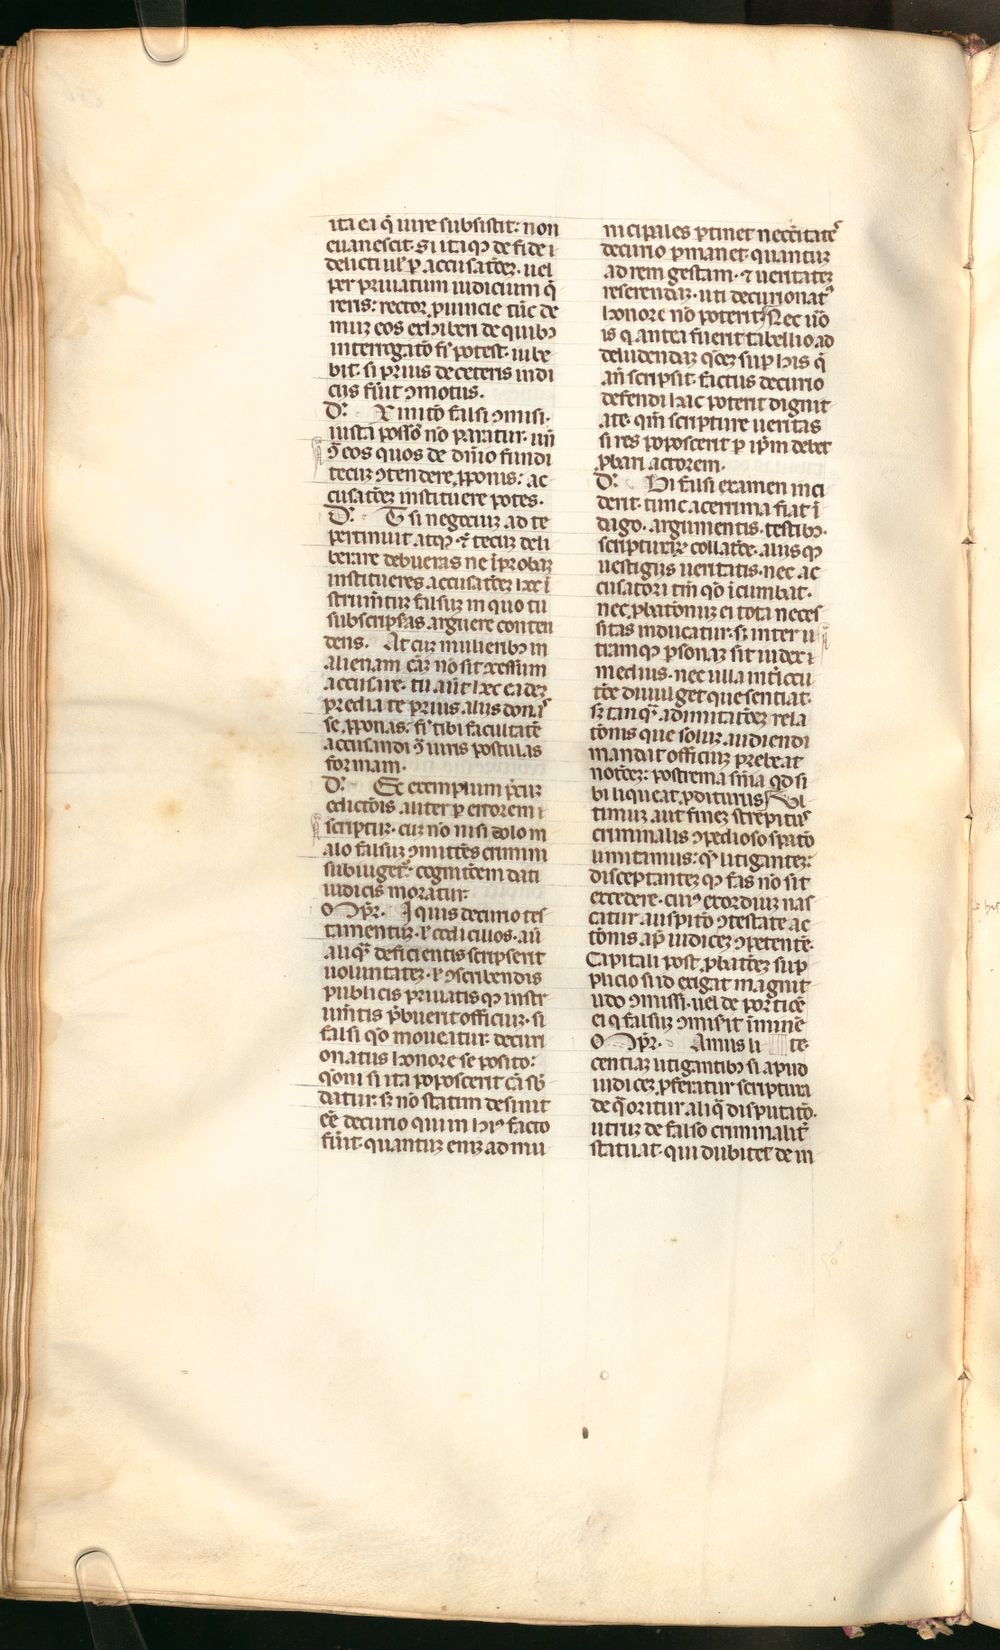 ita ea q̄ iure subsistit: non
euanescit. Si itaq; de fide i
delicti ul' p accusatōez. uel
per priuatum iudicium q̄
reris: rector ꝓuincie tūc de
mum eos exhiberi de quib;
interrogatō fi' potest. iube
bit. si prius de ceteris iudi
cijs fūit ꝯmotus.
D'. X inuito falsi ꝯmisi.
iusta possō nō paratur. un̄
ꝯ eos quos de dn̄io fundi
tecum ꝯtendere ꝓponis: ac
cusatōez instituere potes.
D'. T si negotium ad te
pertinuit atq; & tecum deli
berare debueras ne īprobam
institueres accusatōez hec ī
strum̄tum falsum in quo tu
subscripsas arguere conten
dens. At cum mulierib; in
alienam cām nō sit ꝯcessum
accusare. tu aūt hec eadem
predia te prius alijs donas
se ꝓponas: fr' tibi facultatē
accusandi ꝯ iuris postulas
formam.
D'. Ec exemplum p̄cum
edictōis aliter p errorem ī
scriptum. cum nō nisi dolo m
alo falsum ꝯmittēs crimini
subiuget: cognitōem dati
iudicis moratur.
O Ip̄r. I quis decurio tes
tamentum. ł codicillos. aū
aliq̄ deficientis scripserit
uoluntatem. ł ꝯscribendis
publicis priuatisq; instr
um̄tis p̄buerit officium. si
falsi q̄o moueatur decuri
onatus honore seposito:
q̄oni si ita poposcerit cā sb'
datur. sz nō statim desinit
eē decurio qui in hi' facto
fūit. quantum enim ad mu
nicipales ptinet necc̄itates
decurio pmanet. quantum
ad rem gestam. & ueritatem
reserendam. uti decurionat'
honore nō poterit. Nec u'o
is q antea fuerit tabellio ad
deludendam q̄oez sup his q̄
an̄ scripsit. factus decurio
defendi hac poterit dignit
ate. qm̄ scripture ueritas
si res poposcerit p ip̄m debet
ꝓbari actorem.
D'. Bi falsi examen inci
derit. tunc acerrima fiat ī
dago. argumentis. testib;.
scripturarum collatōe. alijsq;
uestigijs ueritatis. nec ac
cusatori tm̄ q̄o īcumbat.
nec ꝓbatōnum ei tota neces
sitas indicatur. sz inter u
tramq; psonam sit iudex ī
medius. nec ulla int'locu
tōe diuulget que sentiat.
sz tanq̄ ad imitatōez rela
tōnis que solum audiendi
mandat officium prebeat
notōez: postrema sn̄ia qd si
bi liqueat ꝓditurus. Ul
timum aut finem strepitus
criminalis ꝯpedioso spatō
limitamus: q̄ litigantem:
disceptantemq; fas nō sit
excedere. cui' exordium nas
catur auspitō ꝯtestate ac
tōnis ap' iudicem ꝯpetentē.
Capitali post ꝓbatōez sup
plicio si id exigat magnit
udo ꝯmissi. uel de portōe
ei q falsum ꝯmiserit īminē
O Ip̄r. Amus li te
centiam litigantib; si apud
iudicem ꝓferatur scriptura
de q̄ oritur aliq̄ disputatō.
utrum de falso criminalit'
statuat. qui dubitet de in